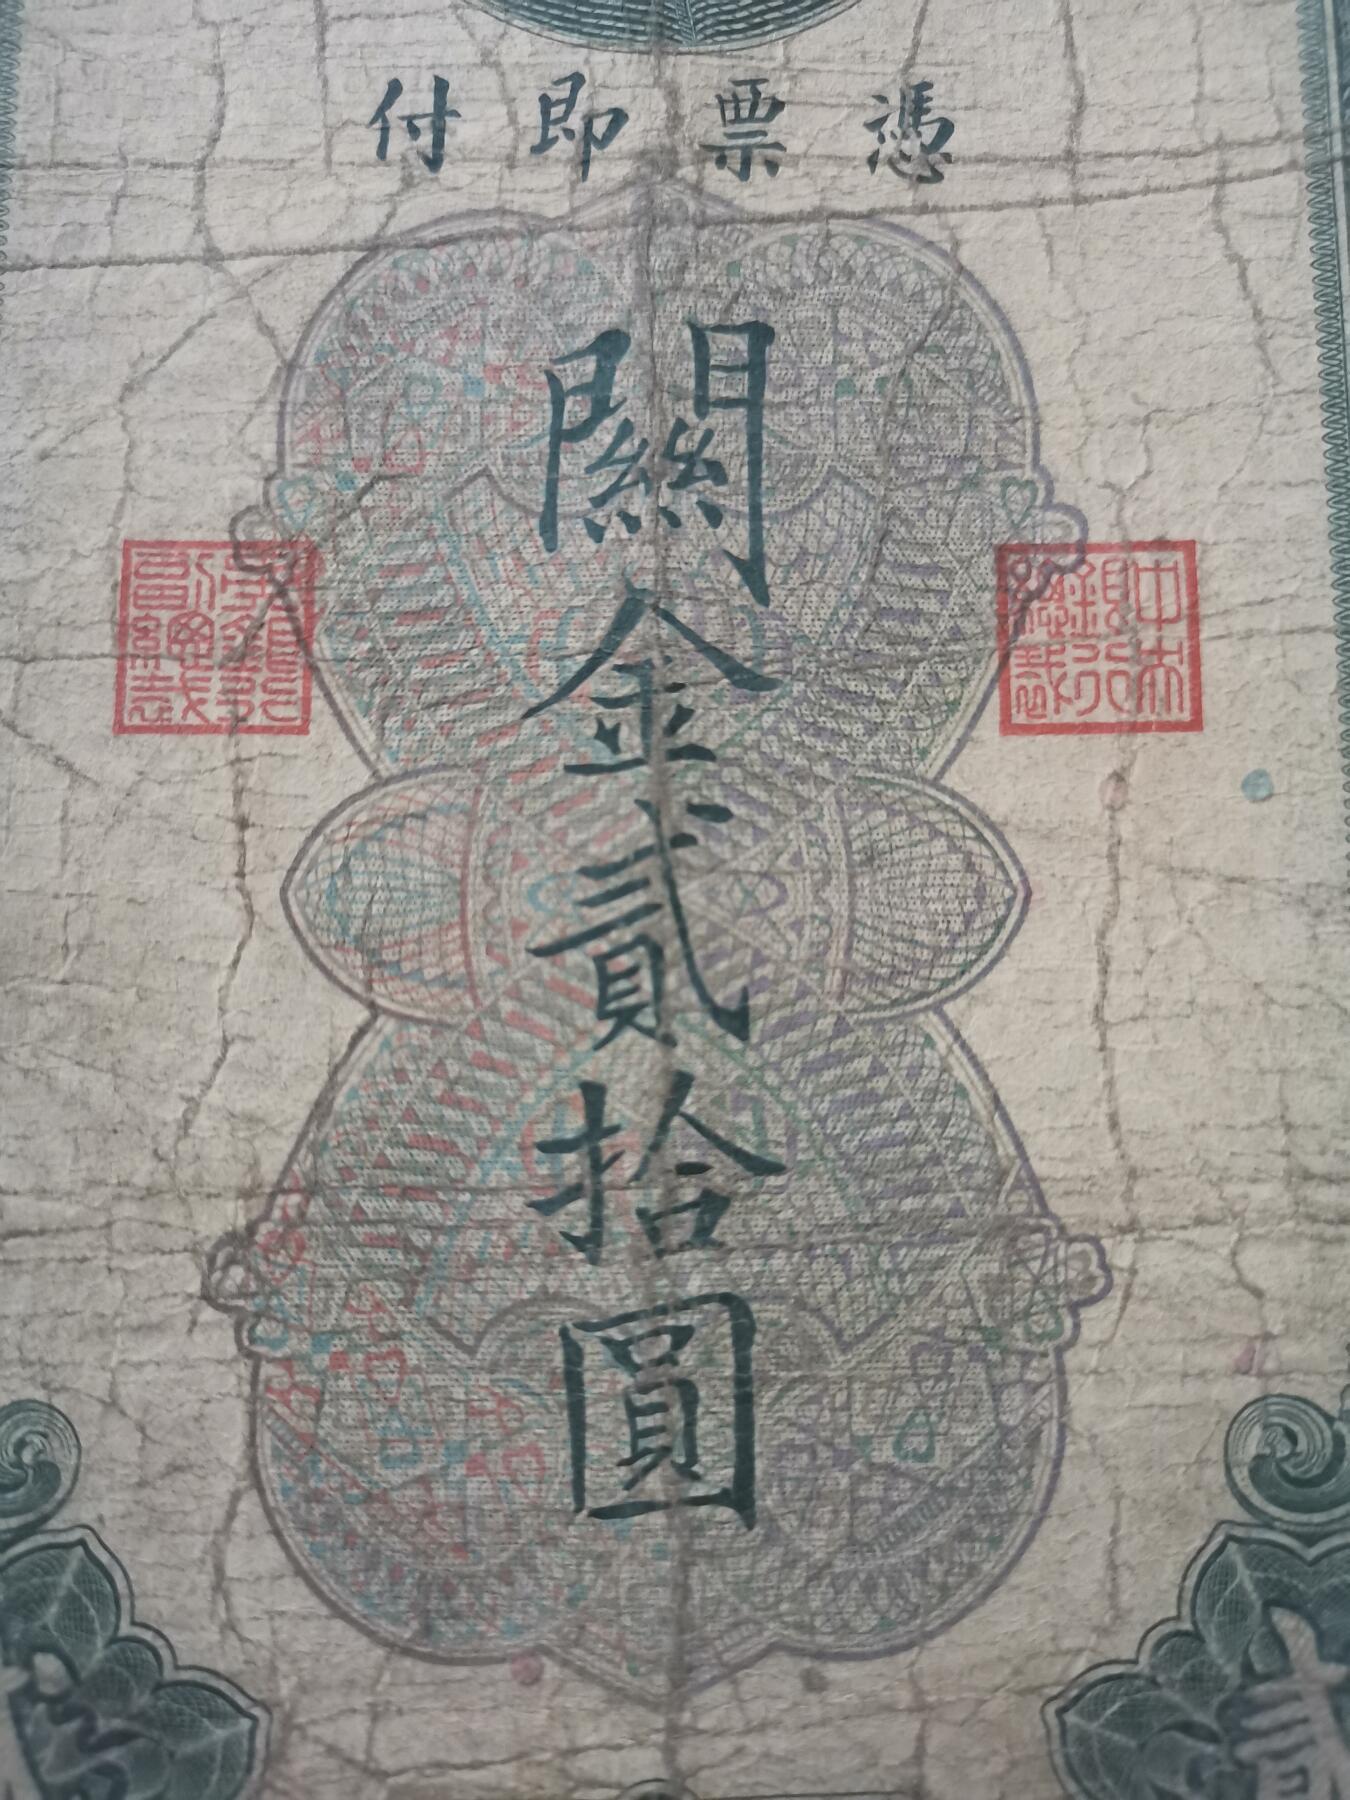 憑票即付
關金貳拾圓
中央銀行總裁